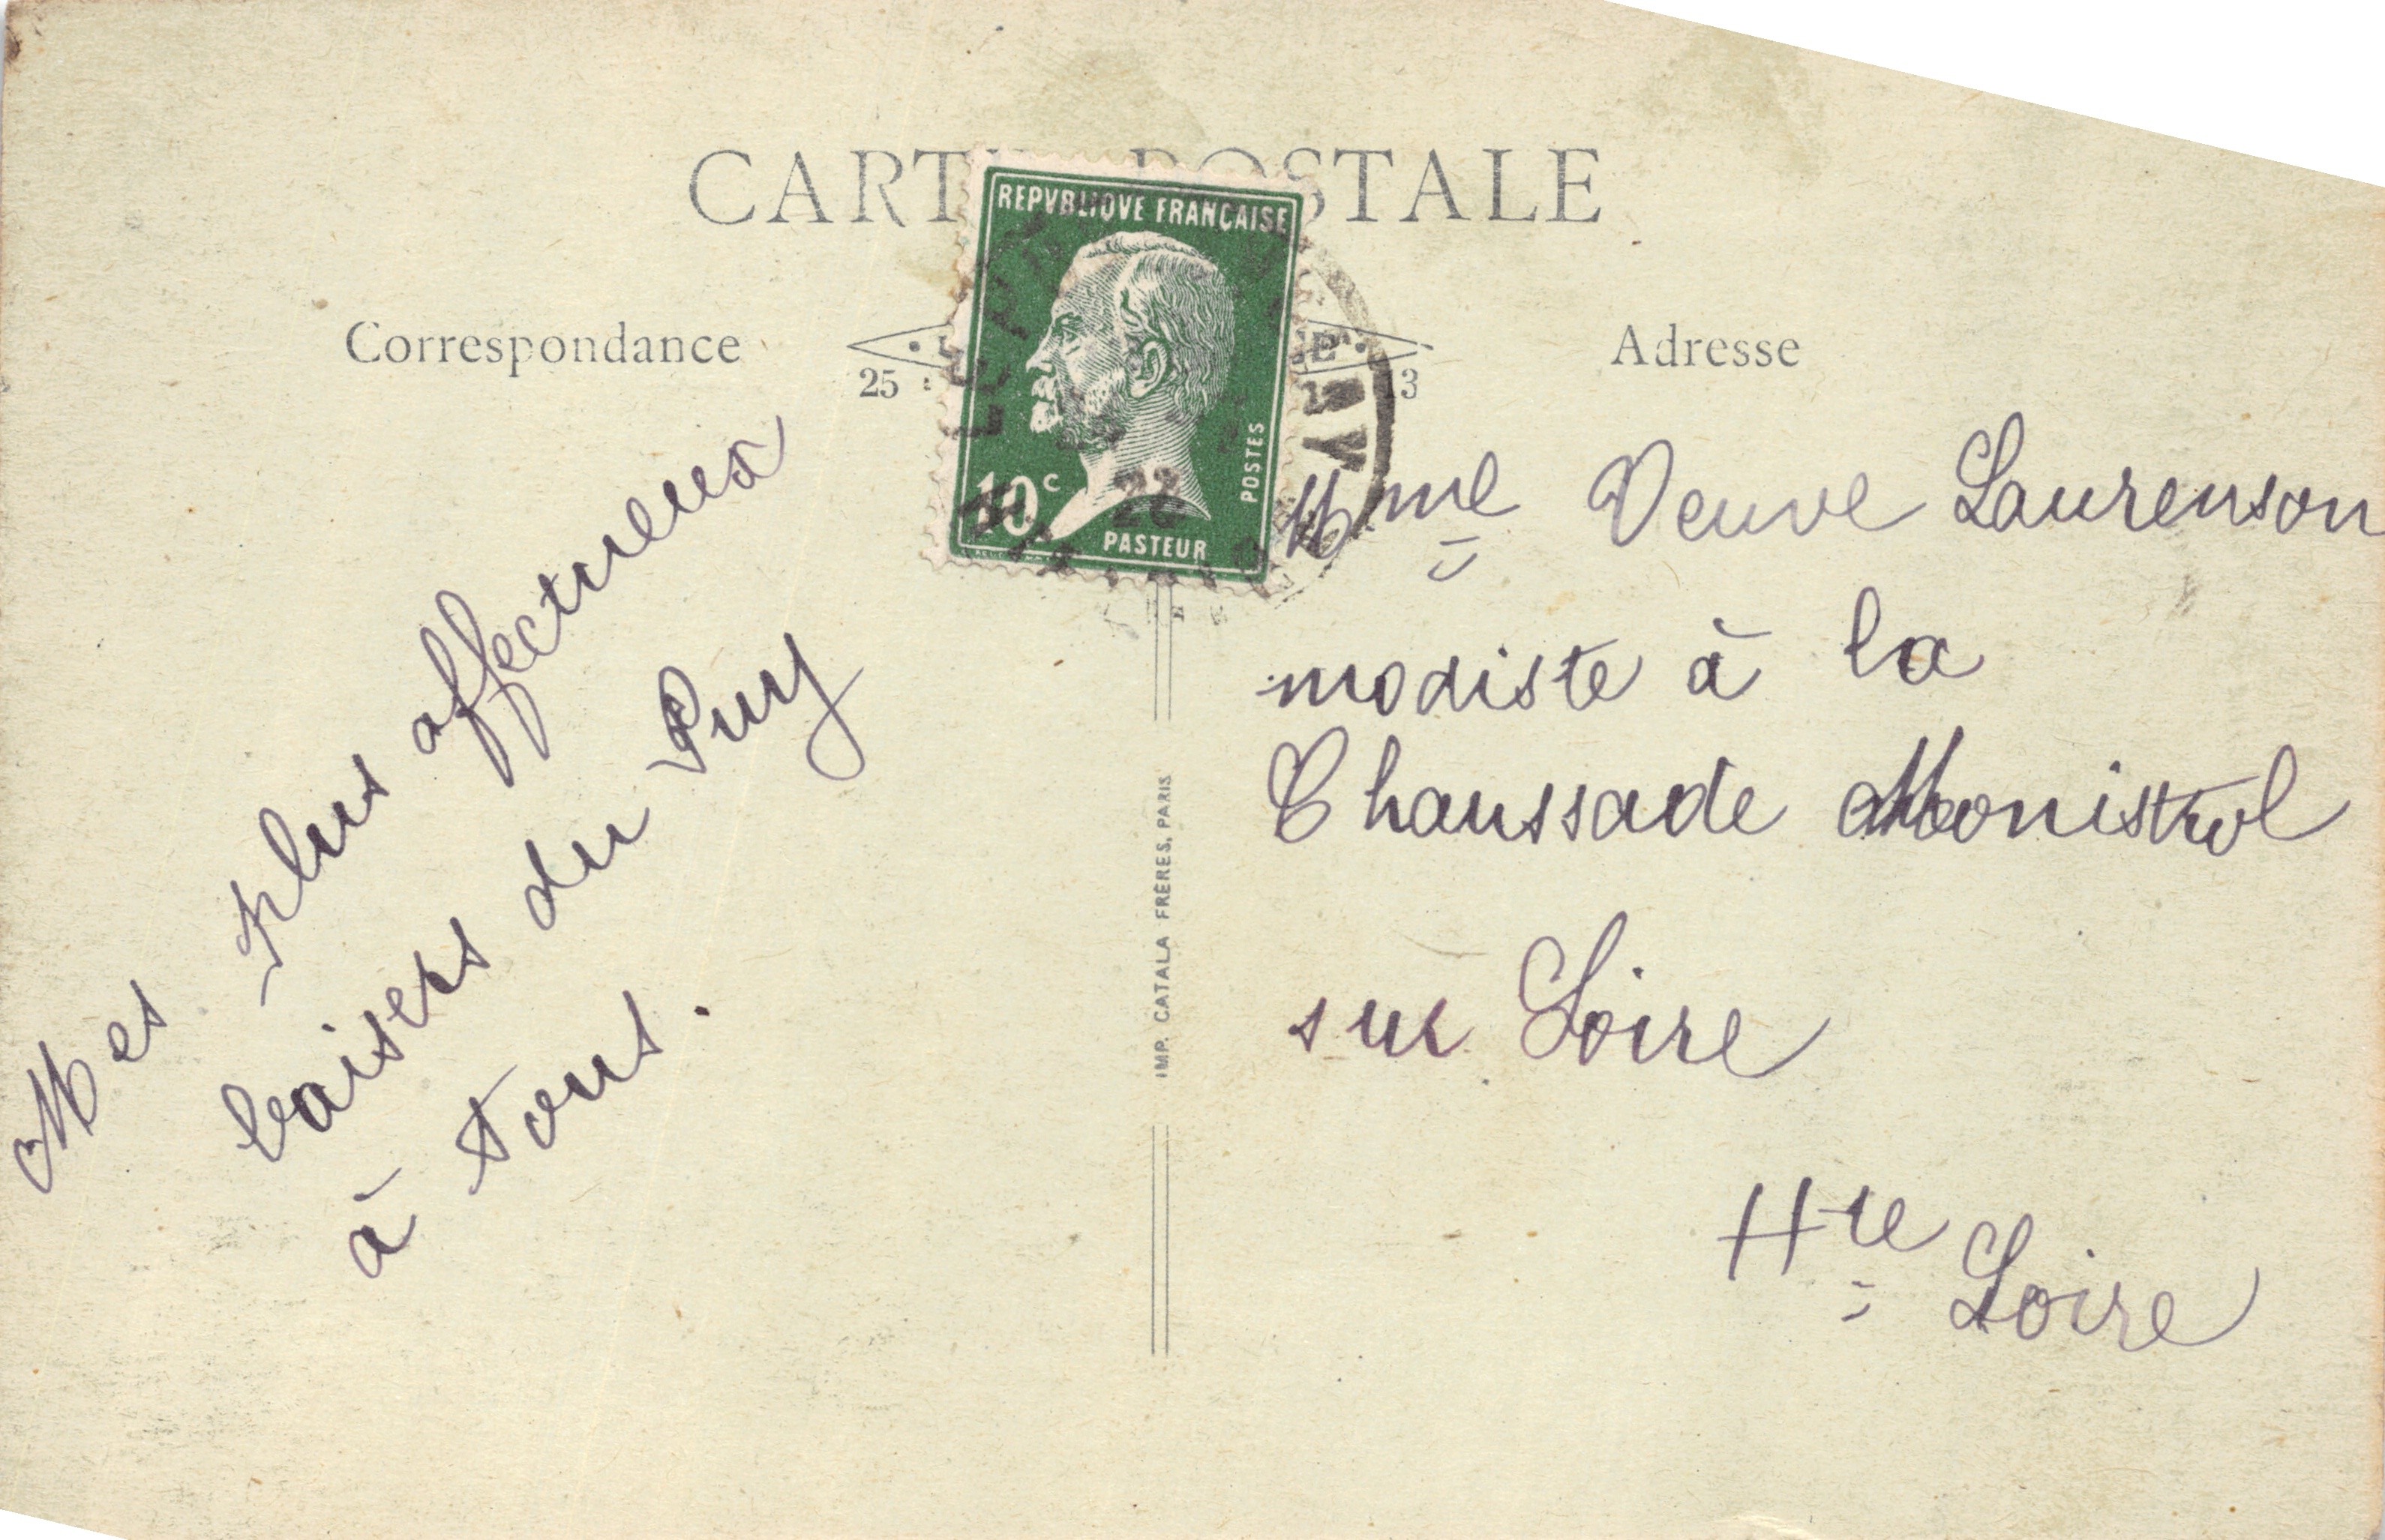 CARTE POSTALE
Correspondance
Adresse
25
3
REPVBLIQVE FRANÇAISE
10c
POSTES
PASTEUR
22
Mes plus affectueux
baisers du Puy
à tous.
IMP. CATALA FRÈRES, PARIS
Mme Veuve Laurenson
modiste à la
Chaussade Monistrol
sur Loire
Hte Loire